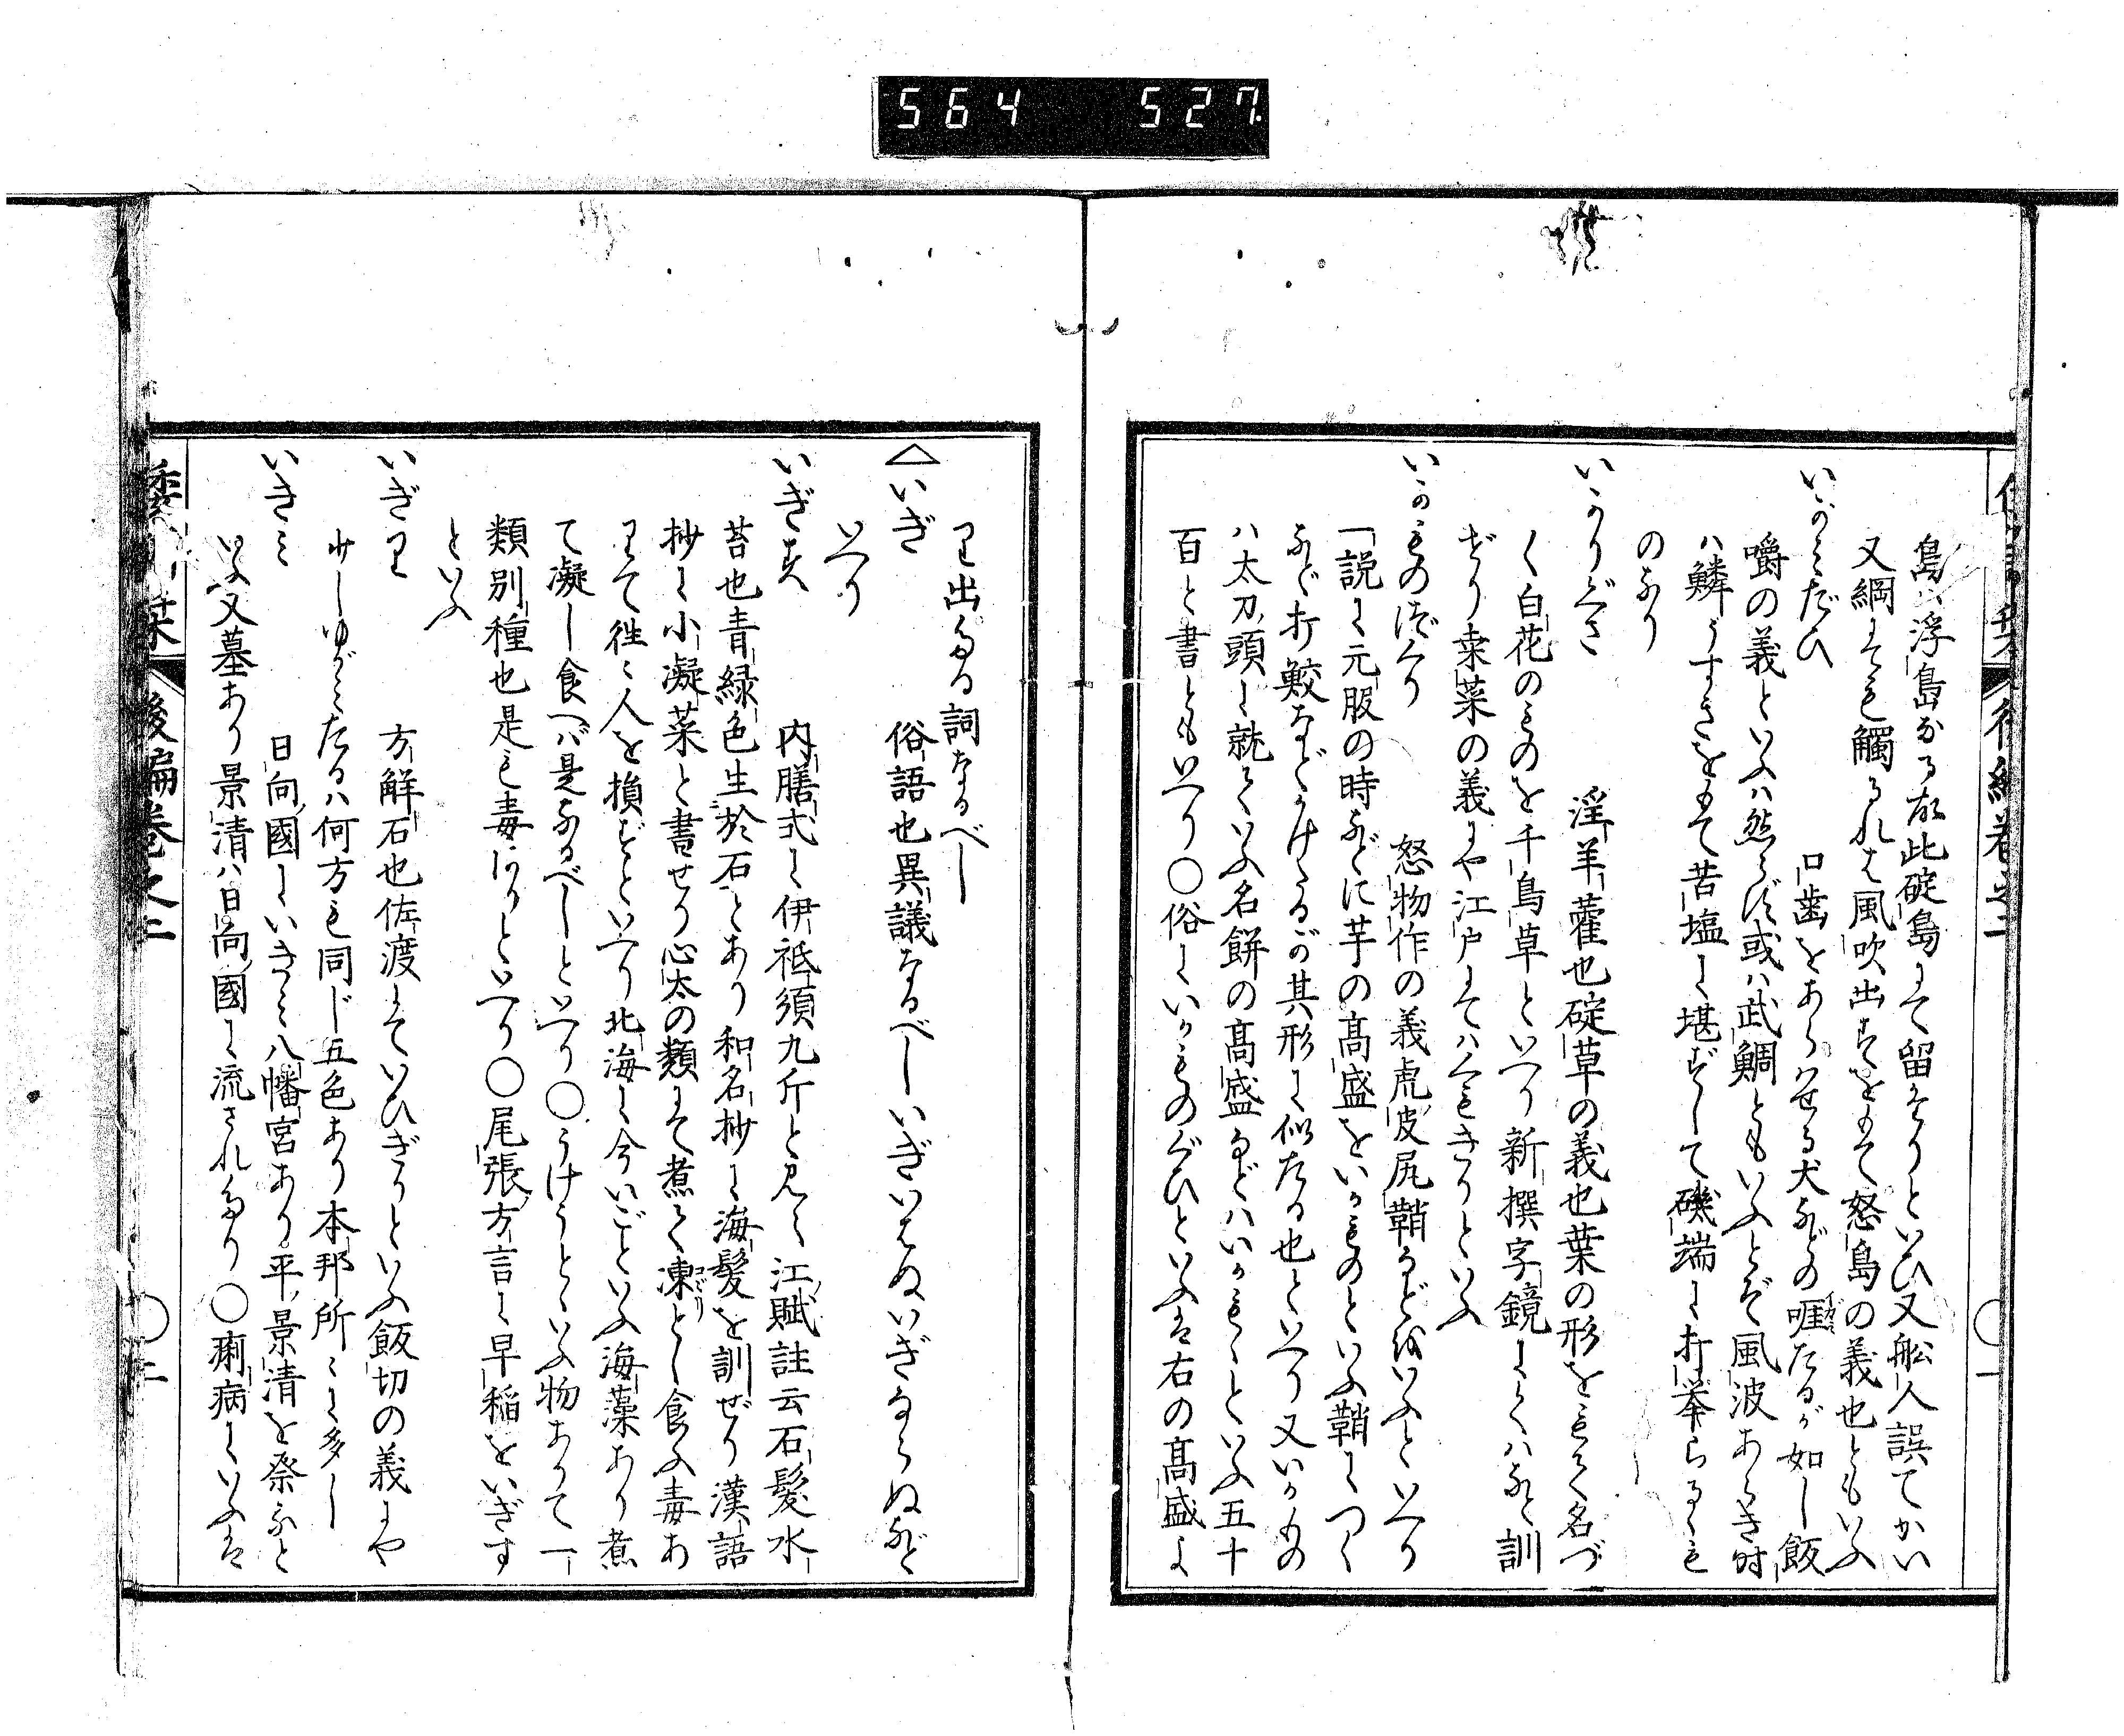 564 527.
島は浮島なる故此碇島にて留たりといひ又舩人誤てかい
又綱にても觸るれは風吹出すをもて怒島の義也ともいふ
いがみだひ 口歯をあらはせる犬などの啀たるが如し飯
嚼の義といふハ然らず或ハ武鯛ともいふとぞ風波あらき時
ハ鱗うすきをもて苦塩に堪ずして磯端に打挙らるゝも
のなり
いかりぐさ 淫羊藿也碇草の義也葉の形をもて名づ
く白花のものを千鳥草といへり新撰字鏡にくハなと訓
ぜり桒菜の義にや江戸にてハくもきりといふ
いかものづくり 怒物作の義虎皮尻鞘などをいふといへり
一説に元服の時などに芋の髙盛をいかものといふ鞘につく
など打鮫などかけたるが其形に似たる也といへり又いかもの
ハ太刀頭に就ていふ名餅の髙盛などハいかもゝといふ五十
百と書ともいへり〇俗にいかものぐひといふは右の髙盛よ
り出たる詞なるべし
△いぎ 俗語也異議なるべしいぎいはぬいぎならぬなど
いへり
いぎす 内膳式に伊祗須九斤と見ゆ江賦註云石髪水
苔也青緑色生於石とあり和名抄に海髪を訓ぜり漢語
抄に小凝菜と書せり心太の類にて煮て凍とし食ふ毒あ
りて徃々人を損ずといへり北海に今いごといふ海藻あり煮
て凝し食へば是なるべしといへり〇うけうとゝいふ物ありて一
類別種也是も毒ありといへり〇尾張方言に早稲をいぎす
といふ
いぎり 方解石也佐渡にていひぎりといふ飯切の義にや
少しゆがみたるハ何方も同じ五色あり本邦所々に多し
いきミ 日向國にいきミ八幡宮あり平景清を祭ると
いふ又墓あり景清ハ日向國に流されたり〇痢病にいふは
倭訓栞 後編巻之二 〇二